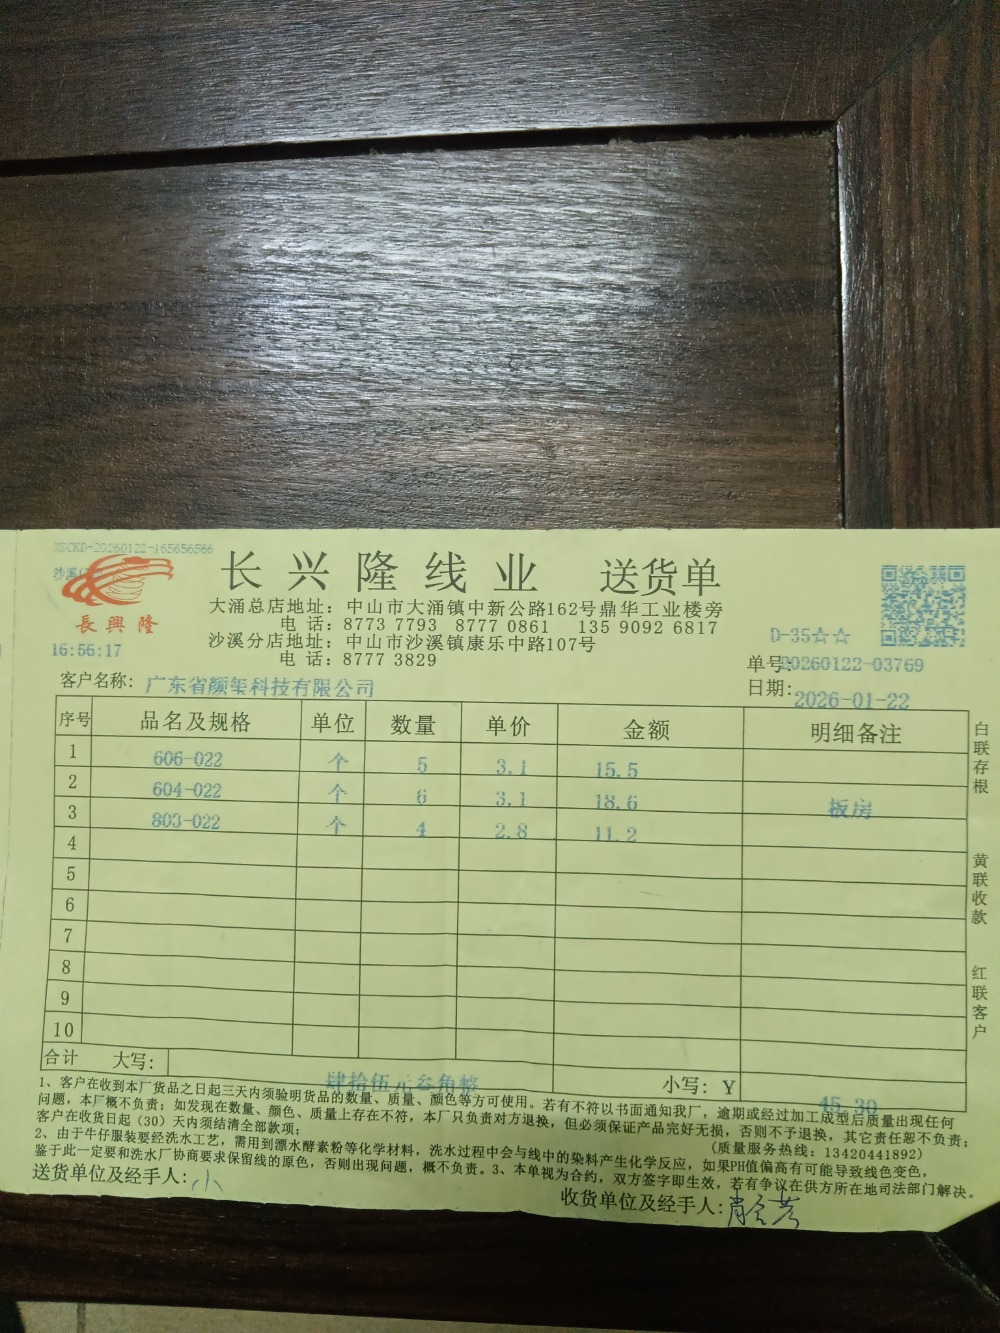 XSCKD-20260122-165656566
长兴隆线业 送货单
沙溪
長興隆
大涌总店地址：中山市大涌镇中新公路162号鼎华工业楼旁
电 话：8773 7793 8777 0861 135 9092 6817
沙溪分店地址：中山市沙溪镇康乐中路107号
电 话：8777 3829
D-35☆☆
16:56:17
单号:20260122-03769
客户名称: 广东省颜玺科技有限公司
日期: 2026-01-22
序号 品名及规格 单位 数量 单价 金额 明细备注
1 606-022 个 5 3.1 15.5
2 604-022 个 6 3.1 18.6 板房
3 803-022 个 4 2.8 11.2
4
5
6
7
8
9
10
合计 大写: 肆拾伍元叁角整 小写: Y 45.30
白联存根
黄联收款
红联客户
1、客户在收到本厂货品之日起三天内须验明货品的数量、质量、颜色等方可使用。若有不符以书面通知我厂，逾期或经过加工成型后质量出现任何
问题，本厂概不负责；如发现在数量、颜色、质量上存在不符，本厂只负责对方退换，但必须保证产品完好无损，否则不予退换，其它责任恕不负责；
客户在收货日起（30）天内须结清全部款项；
（质量服务热线：13420441892）
2、由于牛仔服装要经洗水工艺，需用到漂水酵素粉等化学材料，洗水过程中会与线中的染料产生化学反应，如果PH值偏高有可能导致线色变色，
鉴于此一定要和洗水厂协商要求保留线的原色，否则出现问题，概不负责。3、本单视为合约，双方签字即生效，若有争议在供方所在地司法部门解决。
送货单位及经手人: 小
收货单位及经手人: